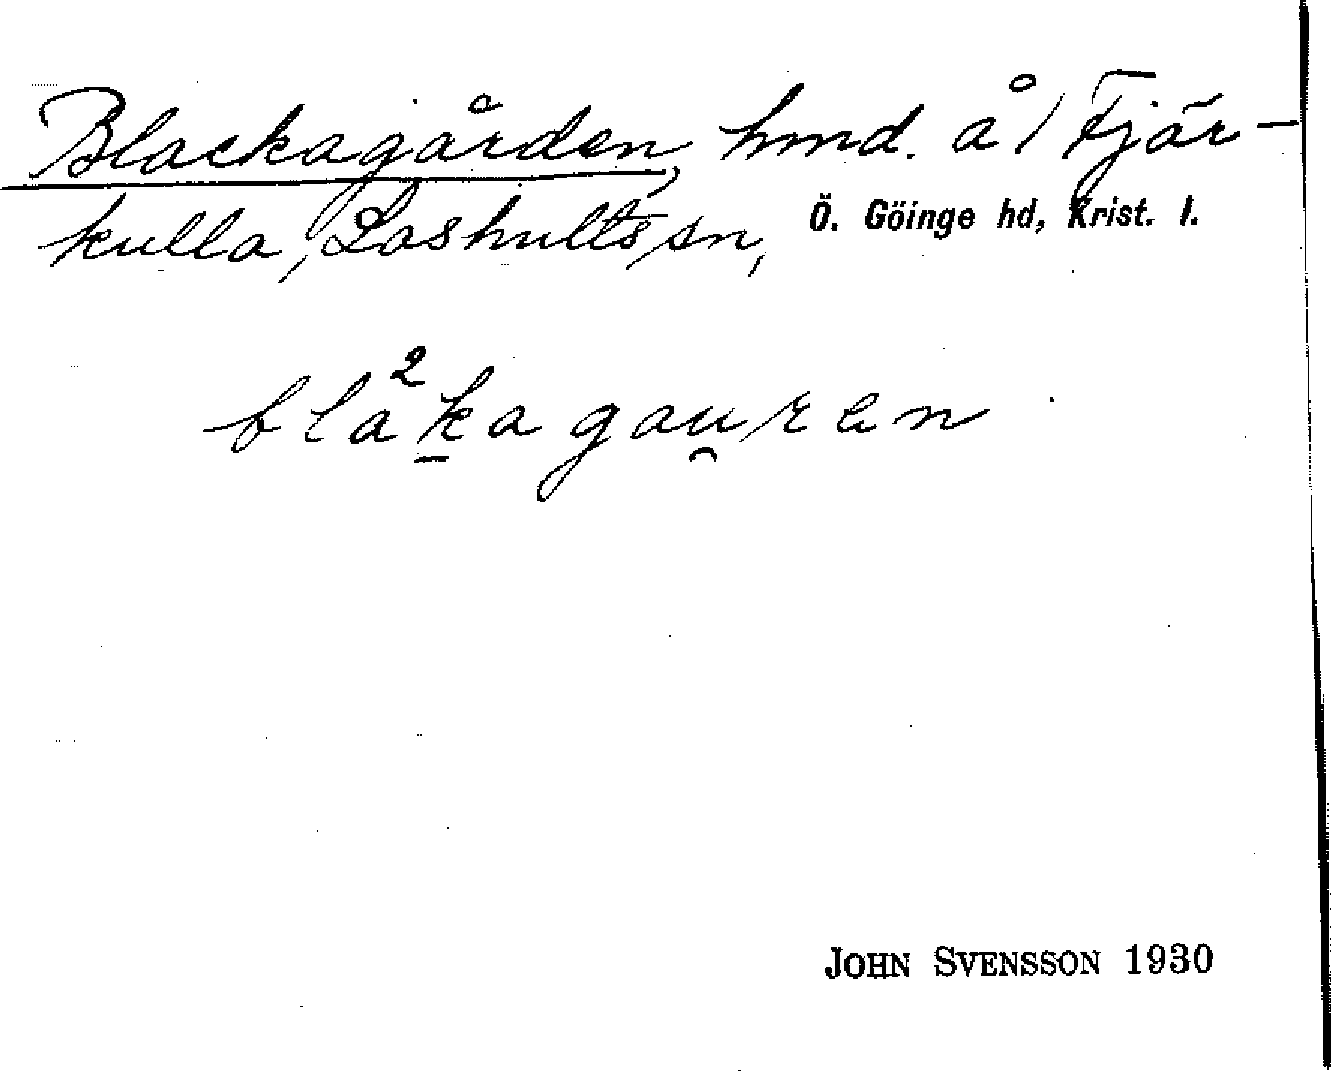 Blackagården, hmd. å 1 Fjär-
kulla, Loshults sn, Ö. Göinge hd, Krist. l.
bla²kagau̯ren
JOHN SVENSSON 1930